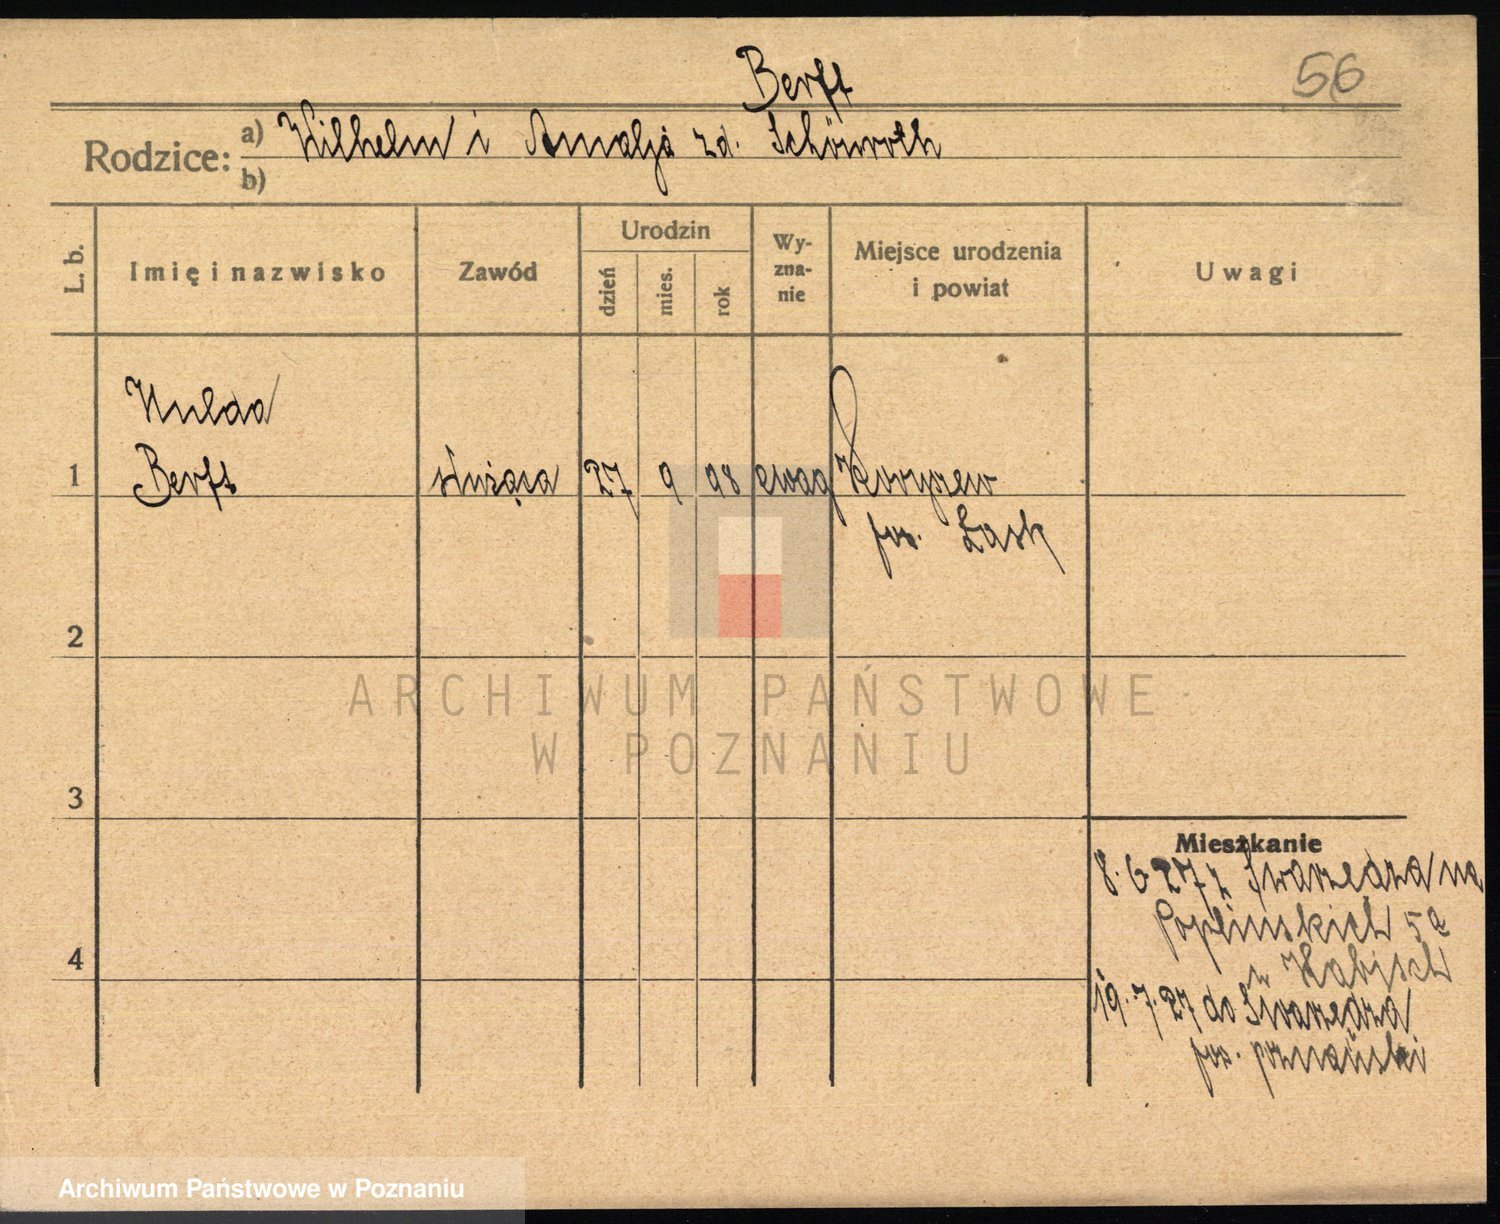 Berft
56
Rodzice: a) Wilhelm i Amalja zd.
b)
L. b.
Imię i nazwisko
Zawód
Urodzin
dzień
mies.
rok
Wy-
zna-
nie
Miejsce urodzenia
i powiat
Uwagi
Hulda
1 Berft służąca 27 9 98 ewag
pow. Łask
2
3
4
Mieszkanie
8.6 27 z Swarzędza na
Poplińskich 5a
u
19.7.27 do Swarzędza
pow. poznański
ARCHIWUM PAŃSTWOWE
W POZNANIU
Archiwum Państwowe w Poznaniu